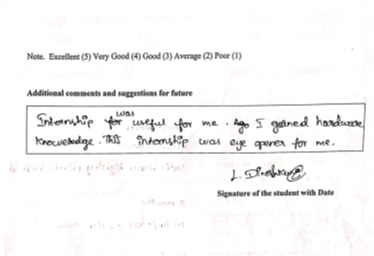 Note. Excellent (5) Very Good (4) Good (3) Average (2) Poor (1)
Additional comments and suggestions for future
was
Internship for useful for me. I gained hardware
knowledge. This internship was eye opener for me.
Signature of the student with Date